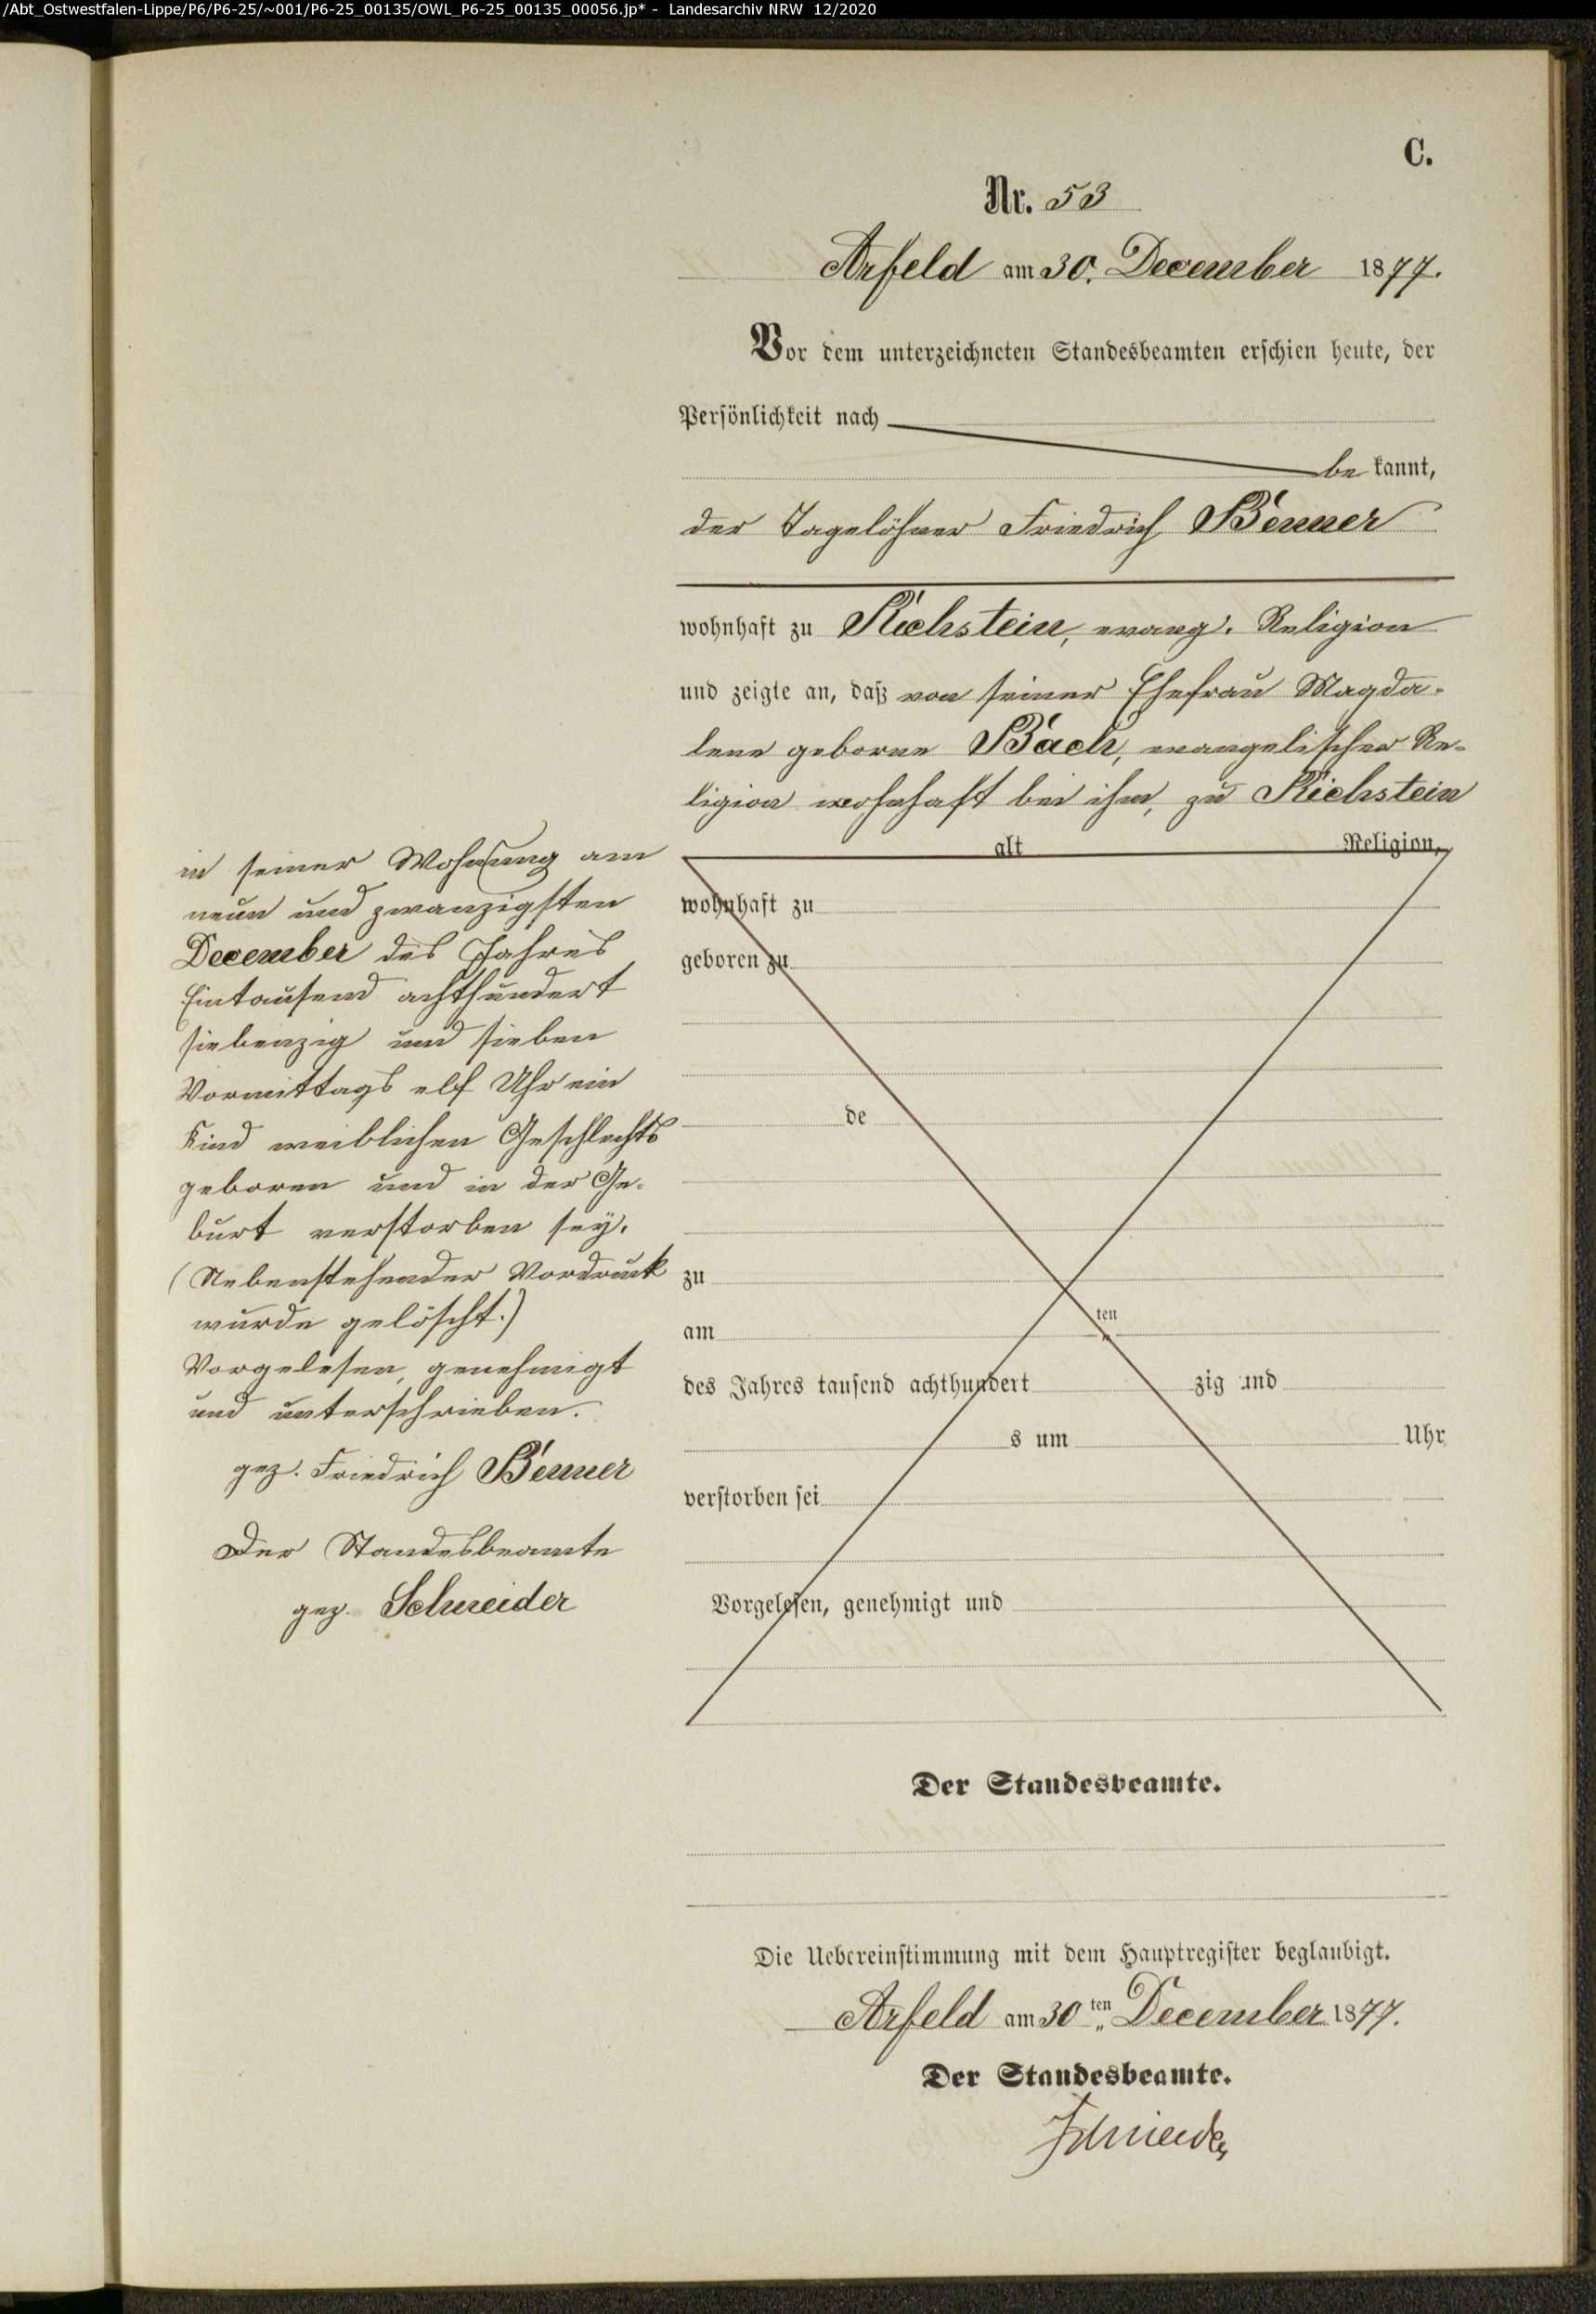 /Abt_Ostwestfalen-Lippe/P6/P6-25/~001/P6-25_00135/OWL_P6-25_00135_00056.jp* - Landesarchiv NRW 12/2020
C.
Nr. 53
Arfeld am 30. December 1877.
Vor dem unterzeichneten Standesbeamten erschien heute, der
Persönlichkeit nach
be kannt,
der Tagelöhner Friedrich Benner
wohnhaft zu Richstein, evang. Religion
und zeigte an, daß von seiner Ehefrau Magda-
lene geborne Bach, evangelischer Re-
ligion wohnhaft bei ihm, zu Richstein
alt Religion,
wohnhaft zu
geboren zu
de
zu
am ten
des Jahres tausend achthundert zig und
s um Uhr
verstorben sei
Vorgelesen, genehmigt und
in seiner Wohnung am
neun und zwanzigsten
December des Jahres
Eintausend achthundert
siebenzig und sieben
Vormittags elf Uhr ein
Kind weiblichen Geschlechts
geboren und in der Ge-
burt verstorben sey.
(Nebenstehender Vordruck
wurde gelöscht.)
Vorgelesen, genehmigt
und unterschrieben.
gez. Friedrich Benner
Der Standesbeamte
gez. Schneider
Der Standesbeamte.
Die Uebereinstimmung mit dem Hauptregister beglaubigt.
Arfeld am 30 ten December 1877.
Der Standesbeamte.
Schneider